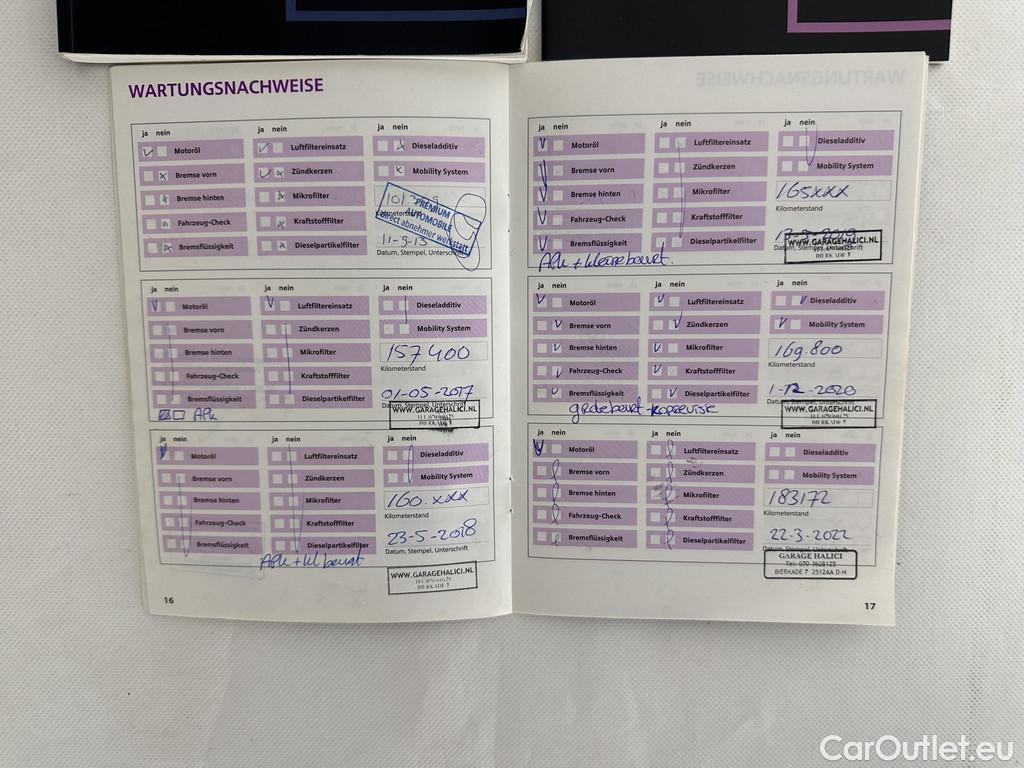 WARTUNGSNACHWEISE
ja nein
Motoröl
Bremse vorn
Bremse hinten
Fahrzeug-Check
Bremsflüssigkeit
ja nein
Luftfiltereinsatz
Zündkerzen
Mikrofilter
Kraftstofffilter
Dieselpartikelfilter
ja nein
Dieseladditiv
Mobility System
PREMIUM
AUTOMOBILE
direct abnehmer werkstatt
11-9-13
Datum, Stempel, Unterschrift
ja nein
Motoröl
Bremse vorn
Bremse hinten
Fahrzeug-Check
Bremsflüssigkeit
APK
ja nein
Luftfiltereinsatz
Zündkerzen
Mikrofilter
Kraftstofffilter
Dieselpartikelfilter
ja nein
Dieseladditiv
Mobility System
157400
Kilometerstand
01-05-2017
Datum, Stempel, Unterschrift
WWW.GARAGEHALICI.NL
BIERKADE 7
ja nein
Motoröl
Bremse vorn
Bremse hinten
Fahrzeug-Check
Bremsflüssigkeit
ja nein
Luftfiltereinsatz
Zündkerzen
Mikrofilter
Kraftstofffilter
Dieselpartikelfilter
APK + kl beurt
ja nein
Dieseladditiv
Mobility System
160.xxx
Kilometerstand
23-5-2018
Datum, Stempel, Unterschrift
WWW.GARAGEHALICI.NL
BIERKADE 7
16
ja nein
Motoröl
Bremse vorn
Bremse hinten
Fahrzeug-Check
Bremsflüssigkeit
APK + kleine beurt.
ja nein
Luftfiltereinsatz
Zündkerzen
Mikrofilter
Kraftstofffilter
Dieselpartikelfilter
ja nein
Dieseladditiv
Mobility System
165xxx
Kilometerstand
Datum, Stempel, Unterschrift
WWW.GARAGEHALICI.NL
BIERKADE 7
ja nein
Motoröl
Bremse vorn
Bremse hinten
Fahrzeug-Check
Bremsflüssigkeit
ja nein
Luftfiltereinsatz
Zündkerzen
Mikrofilter
Kraftstofffilter
Dieselpartikelfilter
ja nein
Dieseladditiv
Mobility System
169.800
Kilometerstand
1-12-2020
Datum, Stempel, Unterschrift
WWW.GARAGEHALICI.NL
BIERKADE 7
ja nein
Motoröl
Bremse vorn
Bremse hinten
Fahrzeug-Check
Bremsflüssigkeit
ja nein
Luftfiltereinsatz
Zündkerzen
Mikrofilter
Kraftstofffilter
Dieselpartikelfilter
ja nein
Dieseladditiv
Mobility System
183172
Kilometerstand
22-3-2022
Datum, Stempel, Unterschrift
GARAGE HALICI
Tel: 070-3608125
BIERKADE 7 2512AA D-H
17
CarOutlet.eu